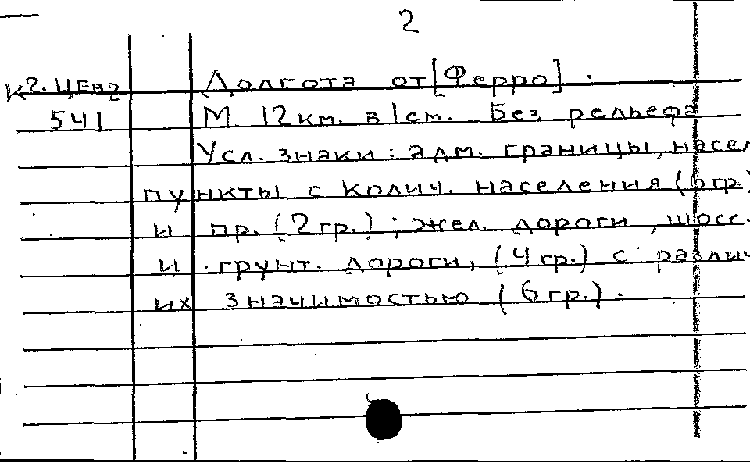 2
К2. ЦЕв2 Долгота от [Ферро].
541 М. 12км. в 1см. Без рельефа
Усл. знаки: адм. границы, насел
пункты с колич. населения (6гр.)
и пр. (2гр.); жел. дороги, шосс.
и грунт. дороги, (4гр.) с различ
их значимостью (6гр.).